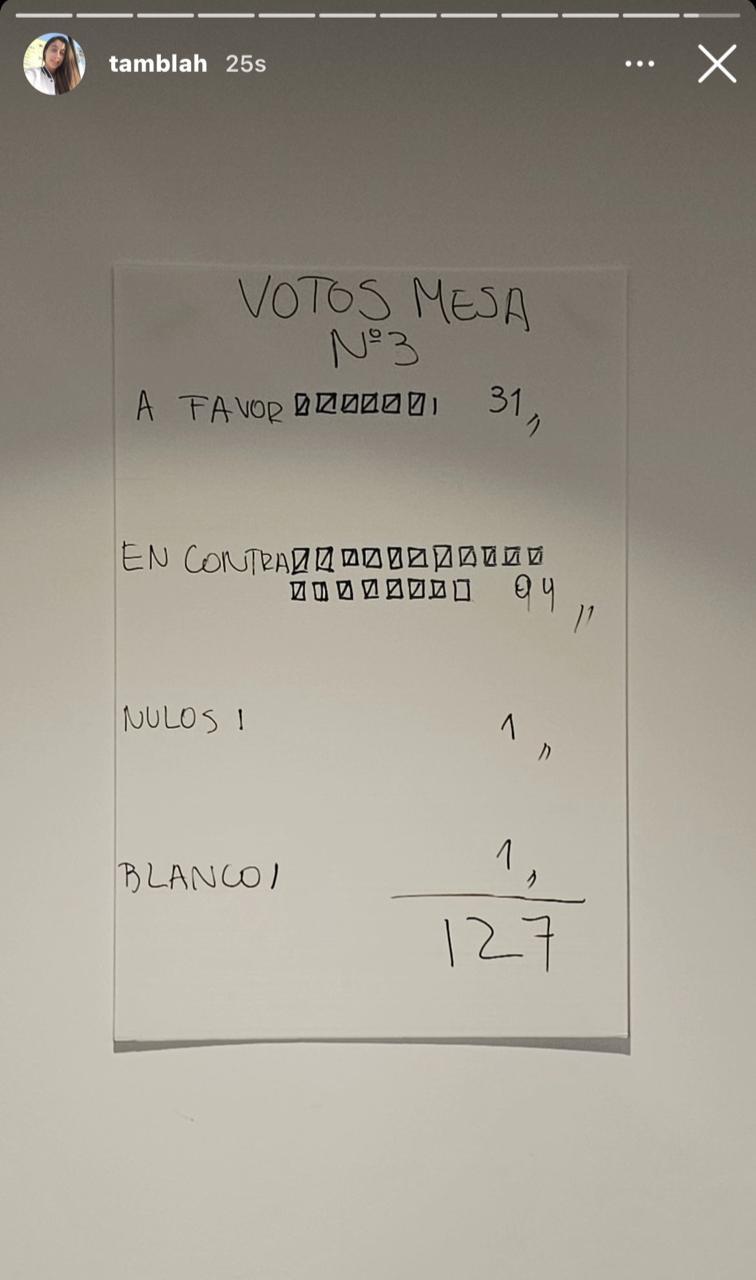 tamblah 25s
VOTOS MESA
Nº3
A FAVOR 31,,
EN CONTRA
94,,
NULOS I 1,,
BLANCO I 1,,
127